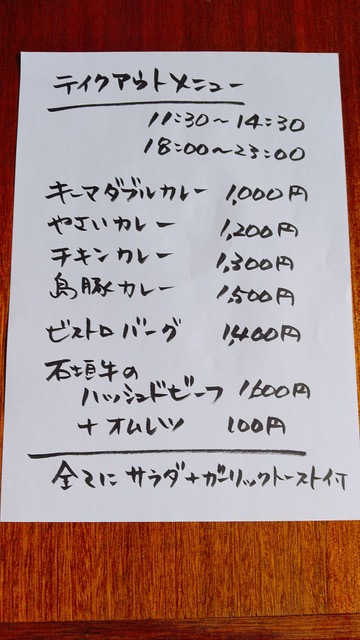 テイクアウトメニュー
11:30～14:30
18:00～23:00
キーマダブルカレー 1,000円
やさいカレー 1,200円
チキンカレー 1,300円
島豚カレー 1,500円
ビストロバーグ 1,400円
石垣牛の
ハッシュドビーフ 1600円
+オムレツ 100円
全てにサラダ+ガーリックトースト付